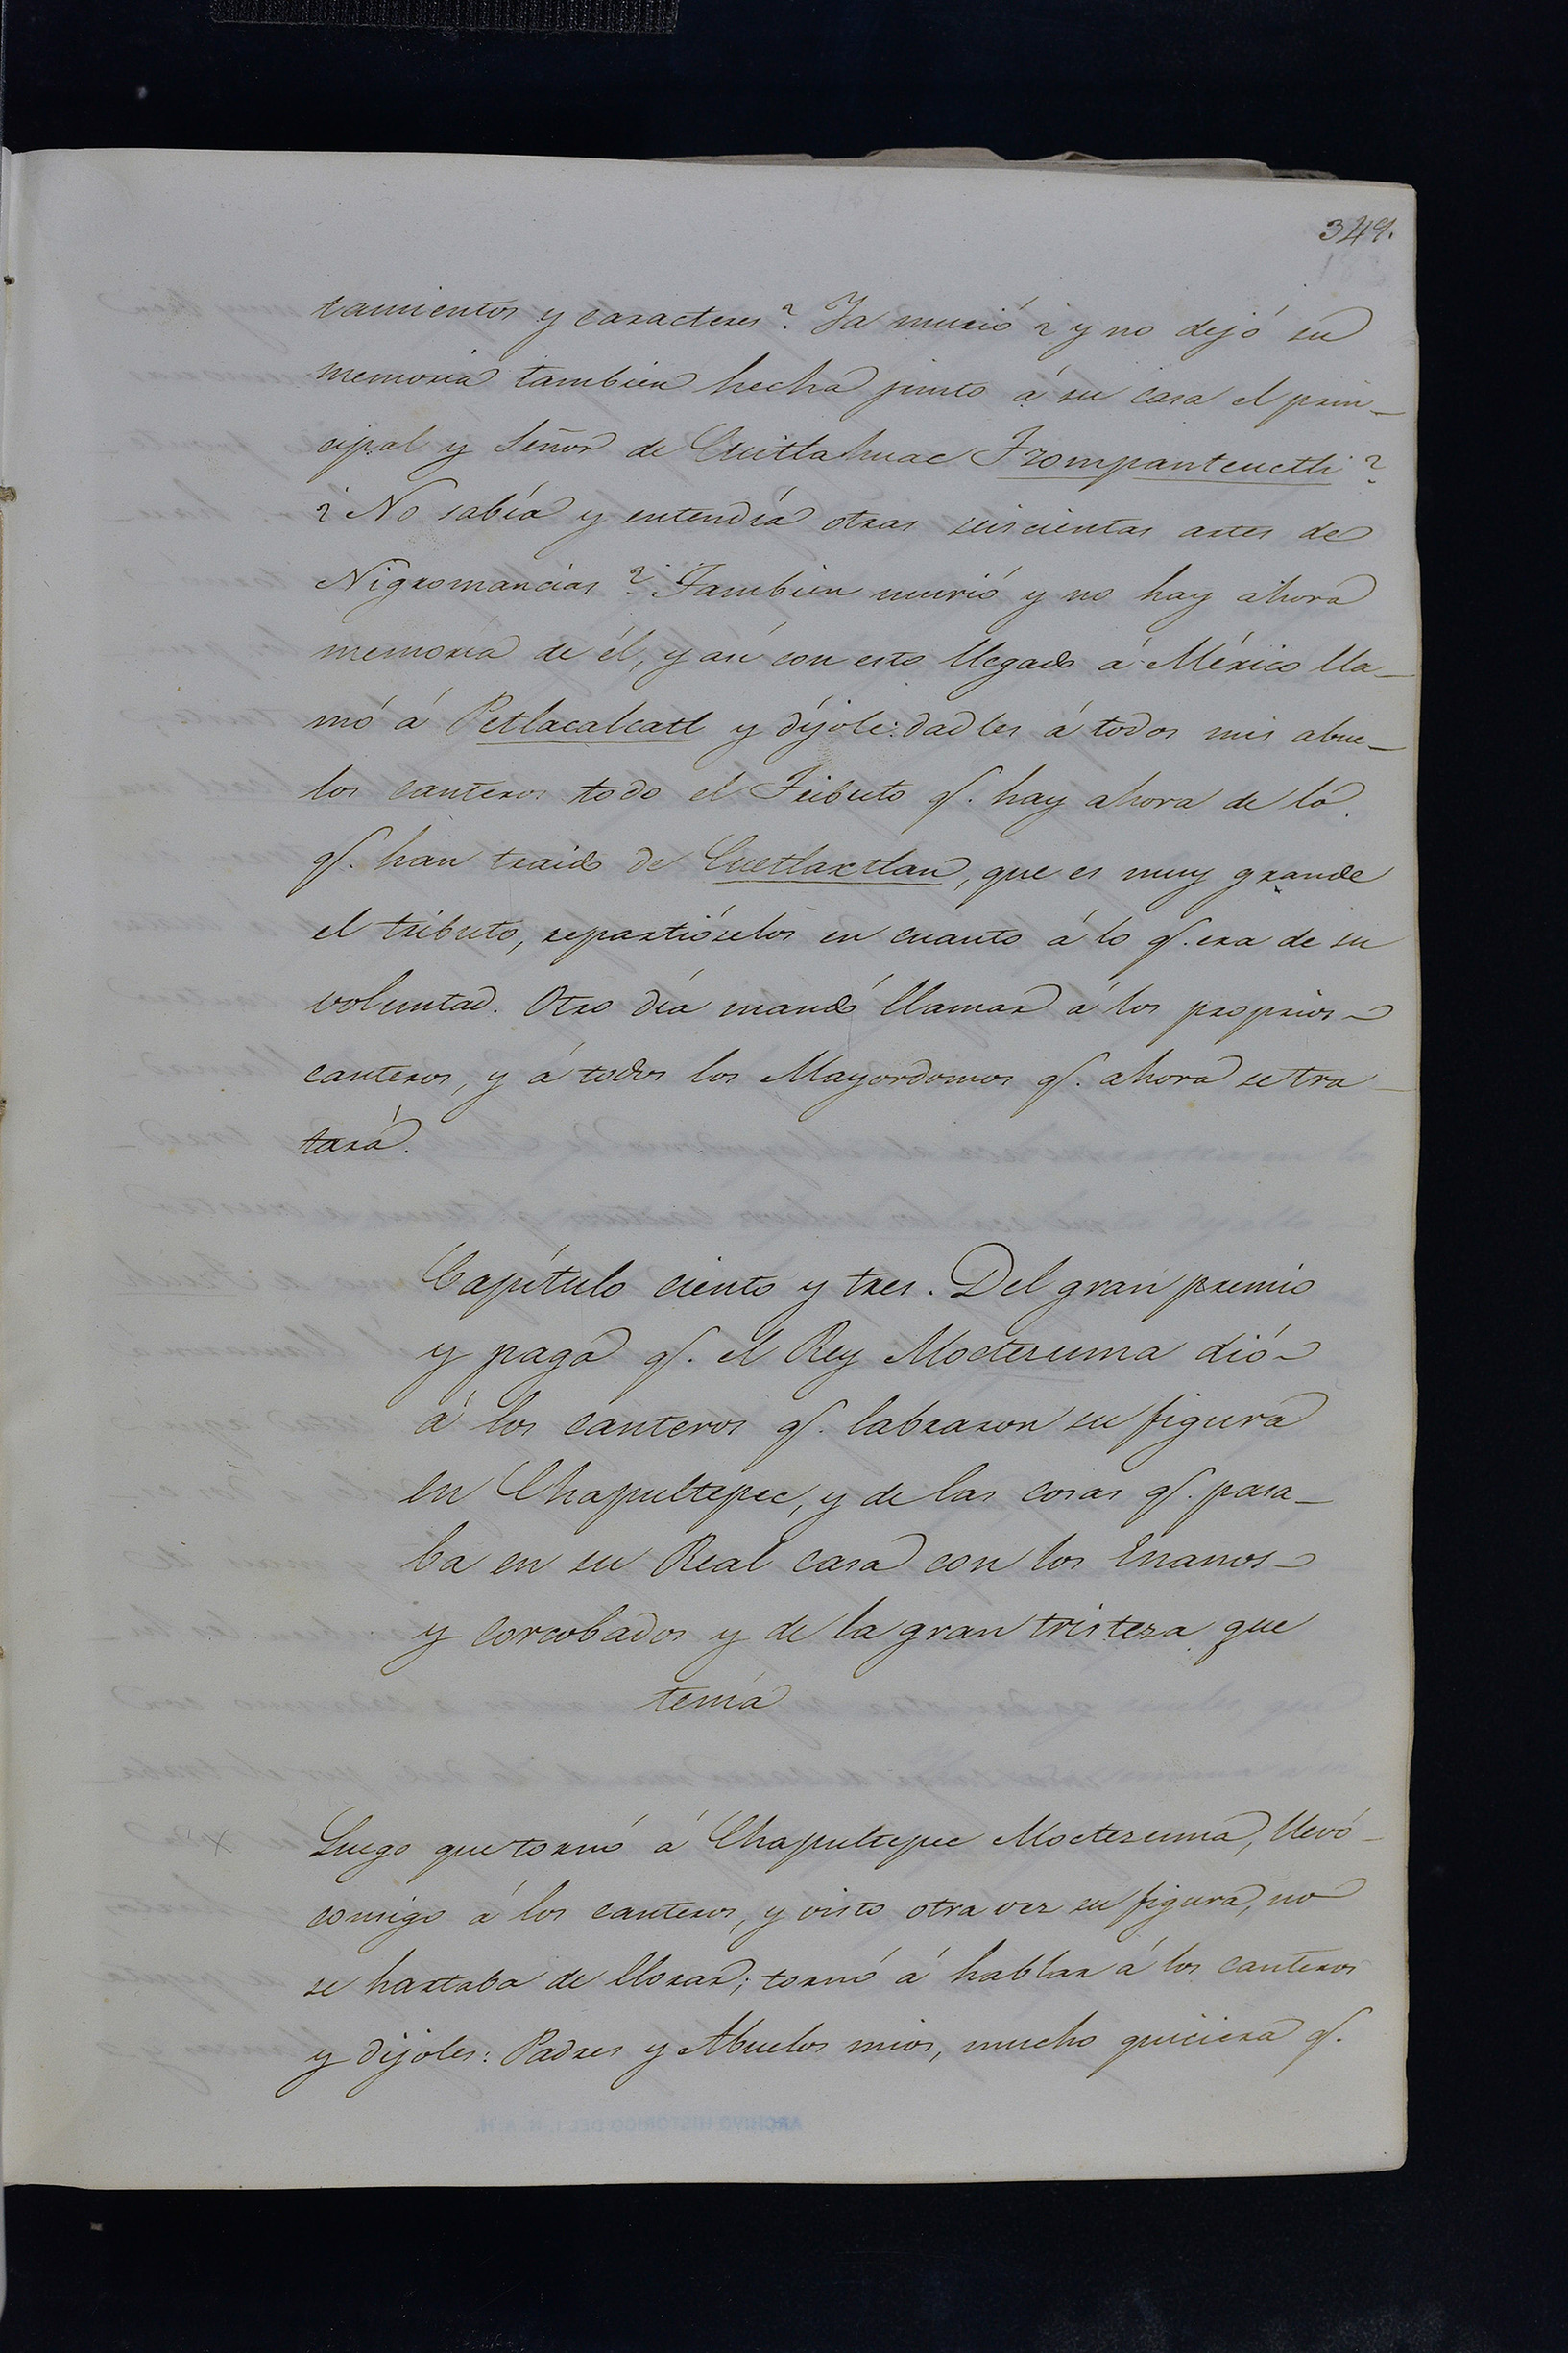 349.
tamientos y caracteres? Ya murió ¿ y no dejó su
memoria tambien hecha junto á su casa el prin-
cipal y Señor de Cuitlahuac Tzompanteuctli?
¿ No sabía y entendía otras seiscientas artes de
Nigromancias? Tambien murió y no hay ahora
memoria de él, y así con esto llegado á México lla-
mó á Petlacalcatl y díjole: dadles á todos mis abue-
los canteros todo el Tributo q. hay ahora de lo
q. han traido de Cuetlaxtlan, que es muy grande
el tributo, repartióselos en cuanto á lo q. era de su
voluntad. Otro día mandó llamar á los proprios
canteros, y á todos los Mayordomos q. ahora se tra-
tará.
Capítulo ciento y tres. Del gran premio
y paga q. el Rey Moctezuma dió
á los canteros q. labraron su figura
en Chapultepec, y de las cosas q. pasa-
ba en su Real casa con los Enanos
y corcobados y de la gran tristeza que
tenía
x Luego que tornó á Chapultepec Moctezuma, llevó
consigo á los canteros, y visto otra vez su figura, no
se hartaba de llorar; tornó á hablar á los canteros
y díjoles: Padres y Abuelos mios, mucho quiciera q.
ARCHIVO HISTORICO DEL I. N. A. H.